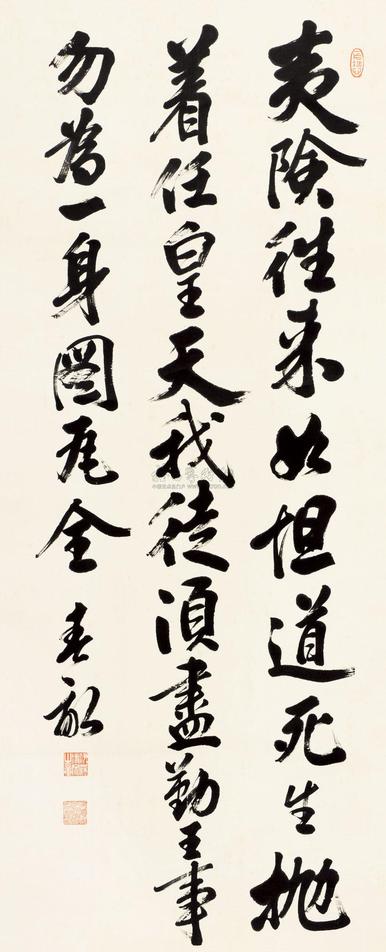 夷険往来如坦道死生抛
着任皇天我徒須盡勤王事
勿為一身圖瓦全 春畝